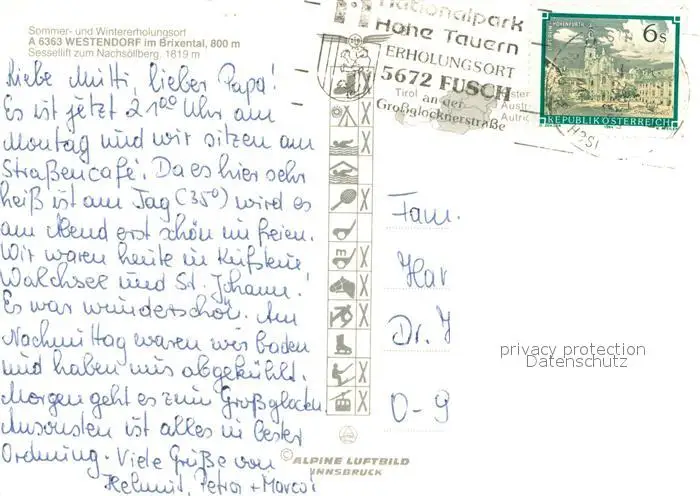 Sommer- und Wintererholungsort
A 6363 WESTENDORF im Brixental, 800 m
Sessellift zum Nachsöllberg, 1819 m
Liebe Mutti, lieber Papa!
Es ist jetzt 21⁰⁰ Uhr am
Montag und wir sitzen am
Straßencafé. Da es hier sehr
heiß ist am Tag (35°) wird es
am Abend erst schön im freien.
Wir waren heute in Kufstein
Walchsee und St. Johann!
Es war wunderschön. Am
Nachmittag waren wir baden
und haben uns abgekühlt.
Morgen geht es zum Großglock
Ansonsten ist alles in bester
Ordnung. Viele Grüße von
Helmut, Petra + Marco!
Nationalpark
Hohe Tauern
ERHOLUNGSORT
5672 FUSCH
an der
Großglocknerstraße
Tirol
6 S
REPUBLIK ÖSTERREICH
Fam.
Har
Dr. J
O-9
privacy protection
Datenschutz
© ALPINE LUFTBILD
INNSBRUCK